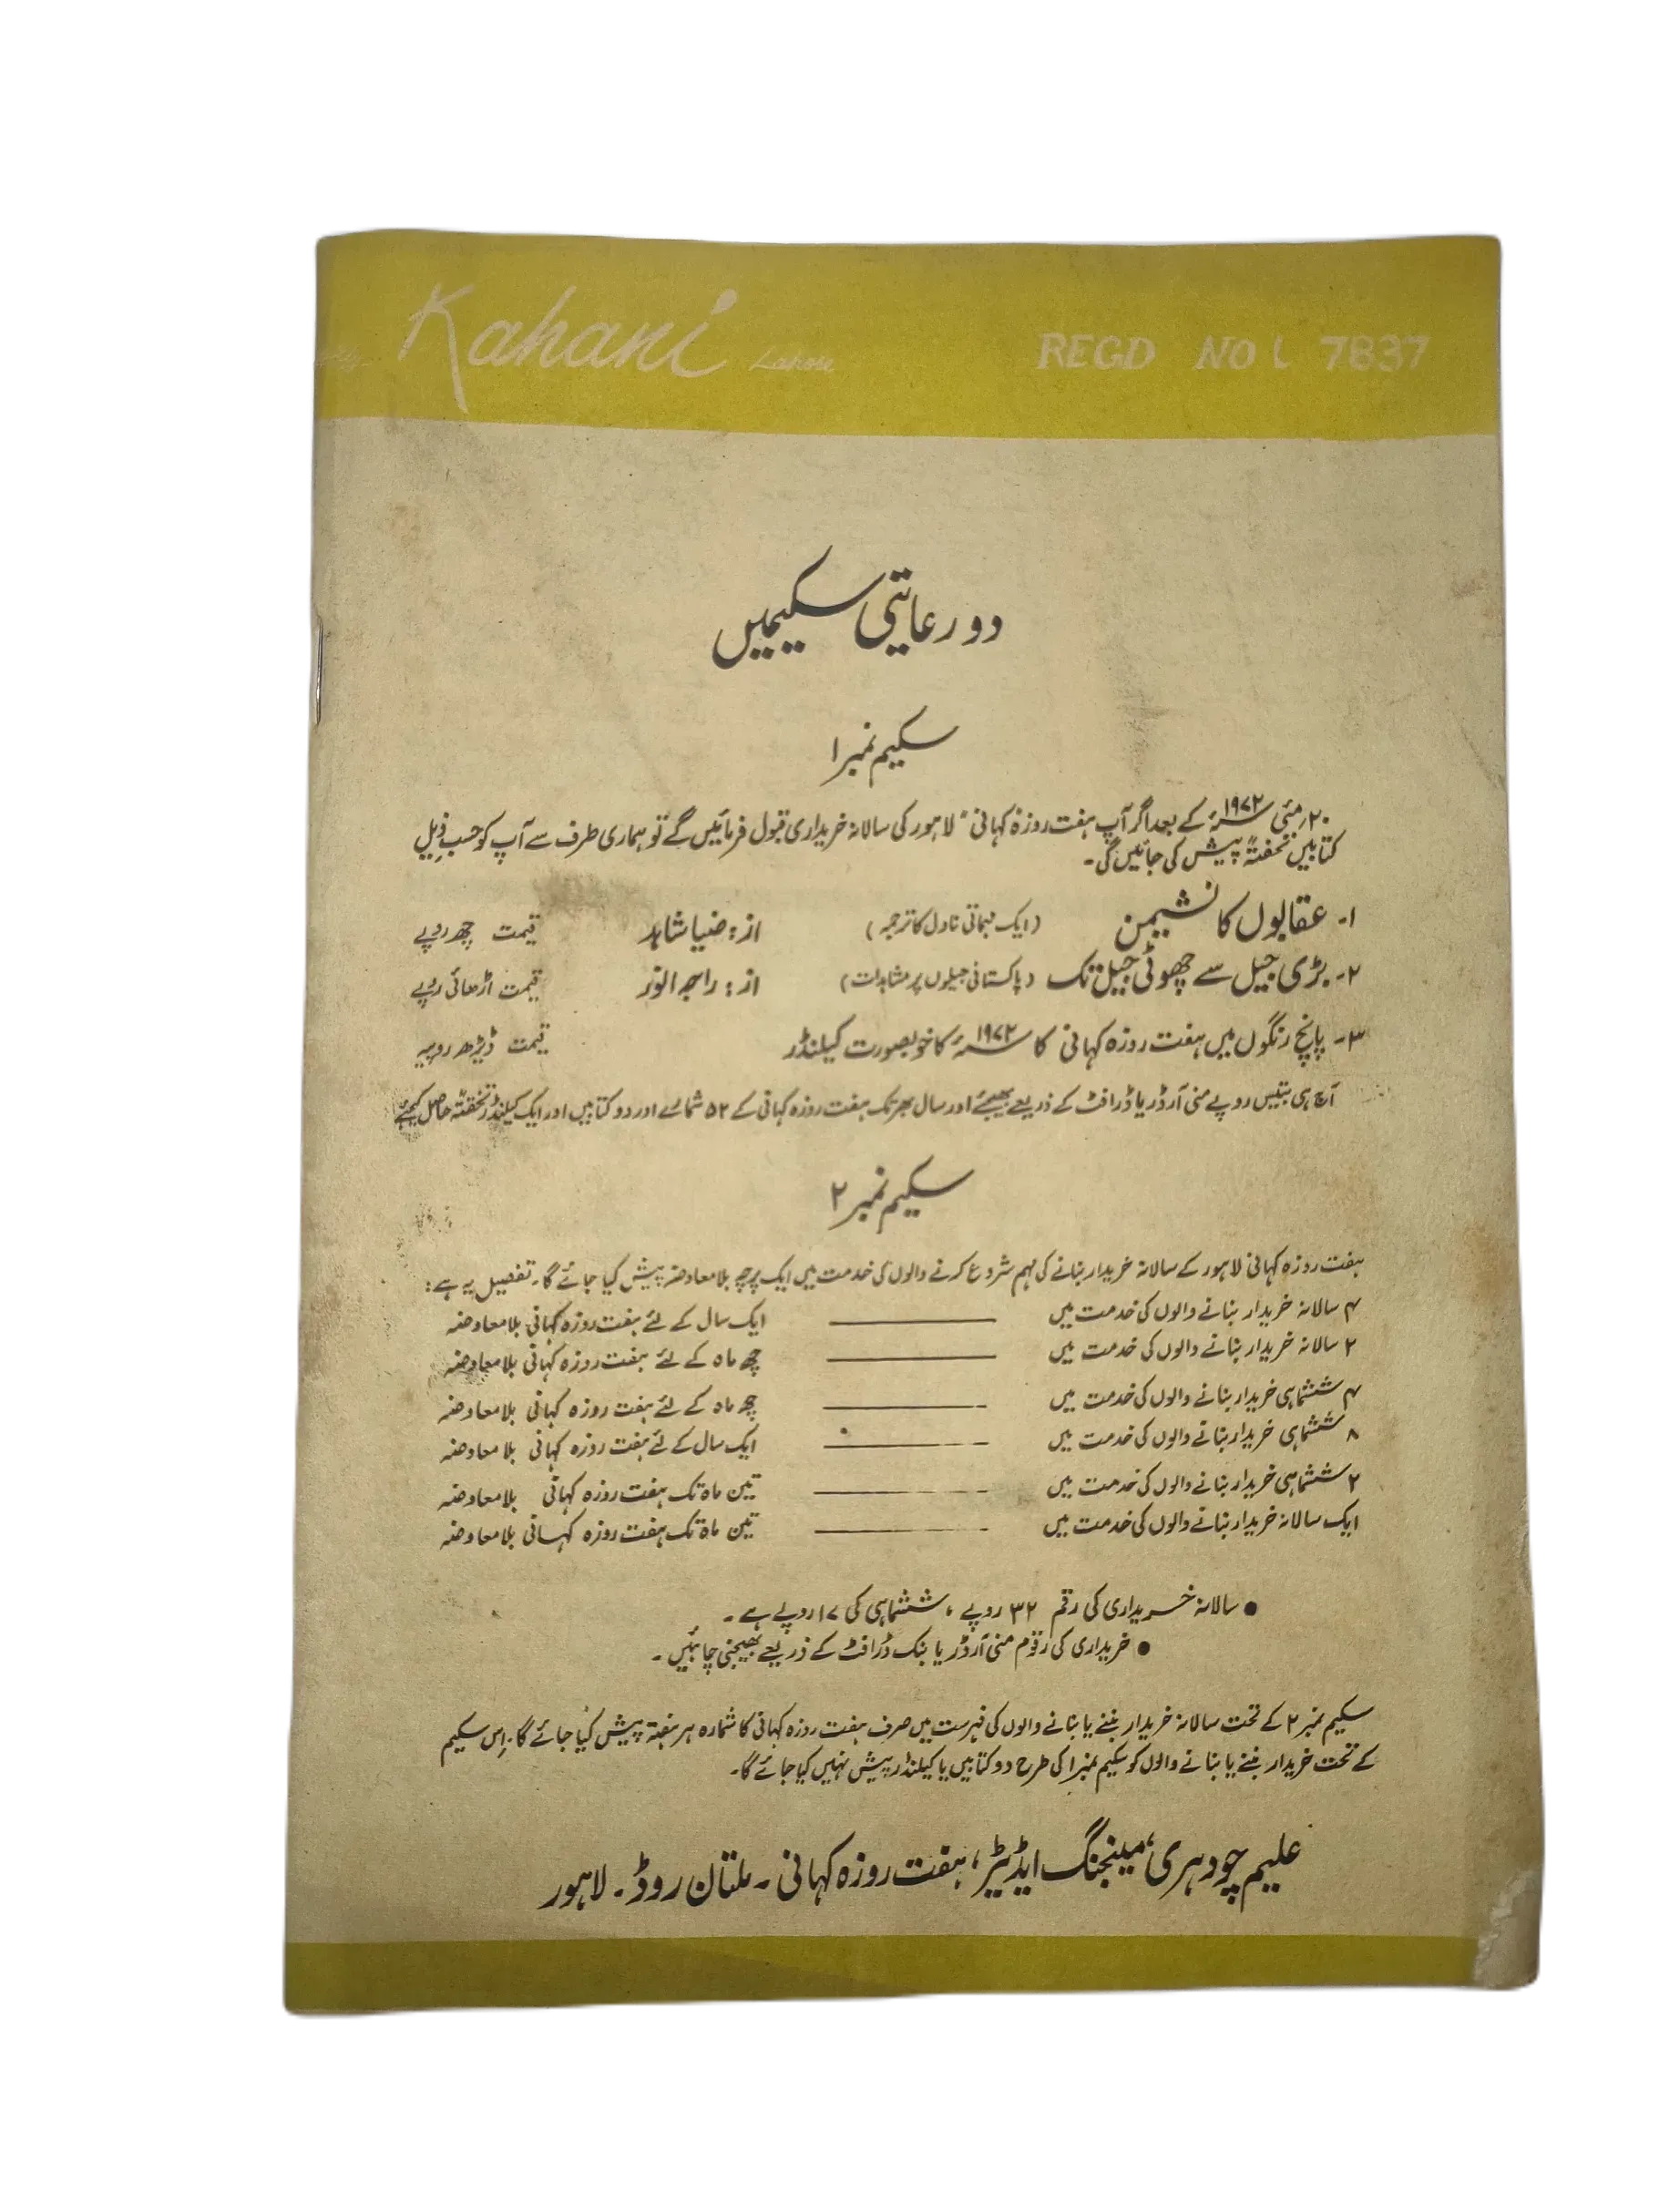 Kahani Lahore REGD NO L 7837
دو رعایتی سکیمیں
سکیم نمبر ۱
۲۰ مئی ۱۹۷۲ء کے بعد اگر آپ ہفت روزہ کہانی" لاہور کی سالانہ خریداری قبول فرمائیں گے تو ہماری طرف سے آپ کو حسب ذیل
کتابیں تحفتہً پیش کی جائیں گی۔
۱۔ عقابوں کا نشیمن (ایک مہماتی ناول کا ترجمہ) از: ضیا شاہد قیمت چھ روپے
۲۔ بڑی جیل سے چھوٹی جیل تک (پاکستانی جیلوں پر مشاہدات) از: راجہ انور قیمت اڑھائی روپے
۳۔ پانچ رنگوں میں ہفت روزہ کہانی کا ۱۹۷۲ء کا خوبصورت کیلنڈر قیمت ڈیڑھ روپیہ
آج ہی بتیس روپے منی آرڈر یا ڈرافٹ کے ذریعے بھیجئے اور سال بھر تک ہفت روزہ کہانی کے ۵۲ شمارے اور دو کتابیں اور ایک کیلنڈر تحفتہً حاصل کیجئے
سکیم نمبر ۲
ہفت روزہ کہانی لاہور کے سالانہ خریدار بنانے کی مہم شروع کرنے والوں کی خدمت میں ایک پرچہ بلا معاوضہ پیش کیا جائے گا۔ تفصیل یہ ہے:
۴ سالانہ خریدار بنانے والوں کی خدمت میں ـــــــ ایک سال کے لئے ہفت روزہ کہانی بلا معاوضہ
۲ سالانہ خریدار بنانے والوں کی خدمت میں ـــــــ چھ ماہ کے لئے ہفت روزہ کہانی بلا معاوضہ
۴ ششماہی خریدار بنانے والوں کی خدمت میں ـــــــ چھ ماہ کے لئے ہفت روزہ کہانی بلا معاوضہ
۸ ششماہی خریدار بنانے والوں کی خدمت میں ـــــــ ایک سال کے لئے ہفت روزہ کہانی بلا معاوضہ
۲ ششماہی خریدار بنانے والوں کی خدمت میں ـــــــ تین ماہ تک ہفت روزہ کہانی بلا معاوضہ
ایک سالانہ خریدار بنانے والوں کی خدمت میں ـــــــ تین ماہ تک ہفت روزہ کہانی بلا معاوضہ
● سالانہ خریداری کی رقم ۳۲ روپے، ششماہی کی ۱۷ روپے ہے۔
● خریداری کی رقوم منی آرڈر یا بنک ڈرافٹ کے ذریعے بھیجنی چاہئیں۔
سکیم نمبر ۲ کے تحت سالانہ خریدار بننے یا بنانے والوں کی فہرست میں صرف ہفت روزہ کہانی کا شمارہ ہر ہفتہ پیش کیا جائے گا۔ اس سکیم
کے تحت خریدار بننے یا بنانے والوں کو سکیم نمبر ۱ کی طرح دو کتابیں یا کیلنڈر پیش نہیں کیا جائے گا۔
علیم چودہری، مینجنگ ایڈیٹر، ہفت روزہ کہانی۔ ملتان روڈ۔ لاہور